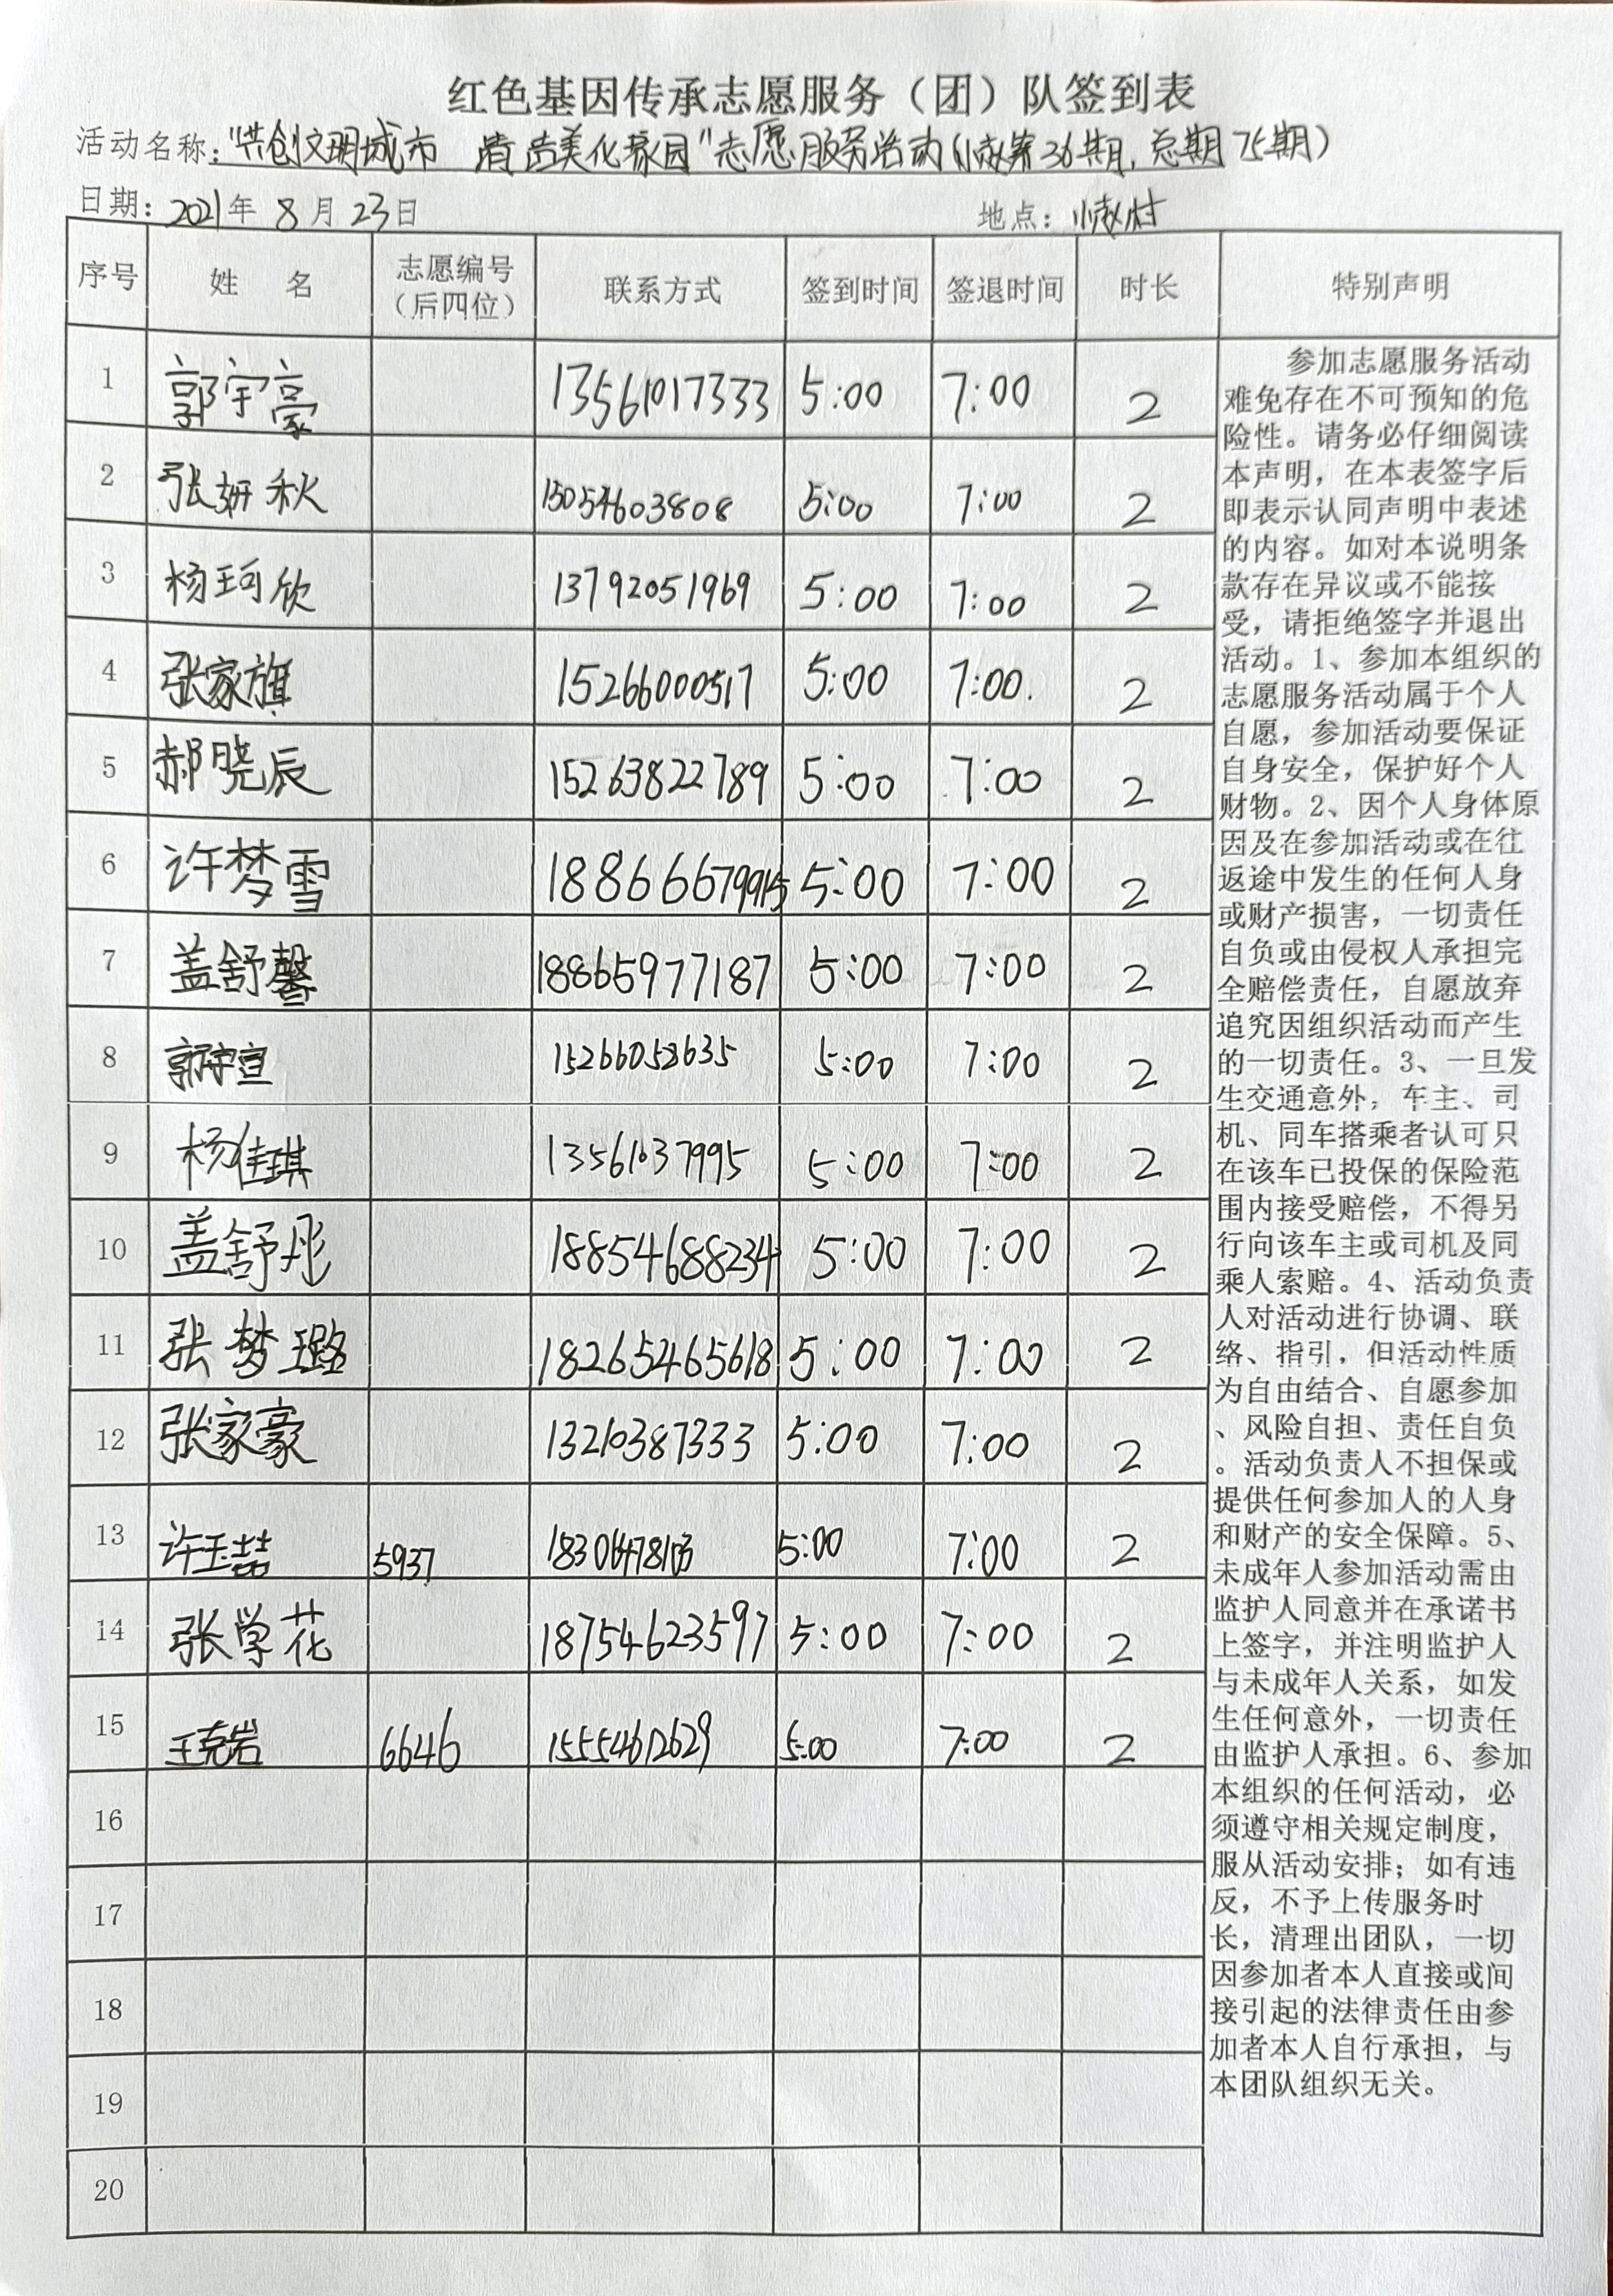 红色基因传承志愿服务（团）队签到表
活动名称：“共创文明城市 清洁美化家园”志愿服务活动（小赵第36期，总期75期）
日期：2021年 8月 23日 地点：小赵村
序号 姓 名 志愿编号（后四位） 联系方式 签到时间 签退时间 时长 特别声明
1 郭宇豪 13561017333 5:00 7:00 2
2 张妍秋 15054603808 5:00 7:00 2
3 杨珂欣 13792051969 5:00 7:00 2
4 张家旗 15266000517 5:00 7:00 2
5 郝晓辰 15263822789 5:00 7:00 2
6 许梦雪 18866679915 5:00 7:00 2
7 盖舒馨 18865977187 5:00 7:00 2
8 郭宇宣 15266058635 5:00 7:00 2
9 杨佳琪 13561037995 5:00 7:00 2
10 盖舒彤 18854688234 5:00 7:00 2
11 张梦璐 18265465618 5:00 7:00 2
12 张家豪 13210387333 5:00 7:00 2
13 许玉喆 5937 5:00 7:00 2
14 张学花 18754623597 5:00 7:00 2
15 王克岩 6646 15554612629 5:00 7:00 2
16
17
18
19
20
参加志愿服务活动
难免存在不可预知的危
险性。请务必仔细阅读
本声明，在本表签字后
即表示认同声明中表述
的内容。如对本说明条
款存在异议或不能接
受，请拒绝签字并退出
活动。1、参加本组织的
志愿服务活动属于个人
自愿，参加活动要保证
自身安全，保护好个人
财物。2、因个人身体原
因及在参加活动或在往
返途中发生的任何人身
或财产损害，一切责任
自负或由侵权人承担完
全赔偿责任，自愿放弃
追究因组织活动而产生
的一切责任。3、一旦发
生交通意外，车主、司
机、同车搭乘者认可只
在该车已投保的保险范
围内接受赔偿，不得另
行向该车主或司机及同
乘人索赔。4、活动负责
人对活动进行协调、联
络、指引，但活动性质
为自由结合、自愿参加
、风险自担、责任自负
。活动负责人不担保或
提供任何参加人的人身
和财产的安全保障。5、
未成年人参加活动需由
监护人同意并在承诺书
上签字，并注明监护人
与未成年人关系，如发
生任何意外，一切责任
由监护人承担。6、参加
本组织的任何活动，必
须遵守相关规定制度，
服从活动安排；如有违
反，不予上传服务时
长，清理出团队，一切
因参加者本人直接或间
接引起的法律责任由参
加者本人自行承担，与
本团队组织无关。